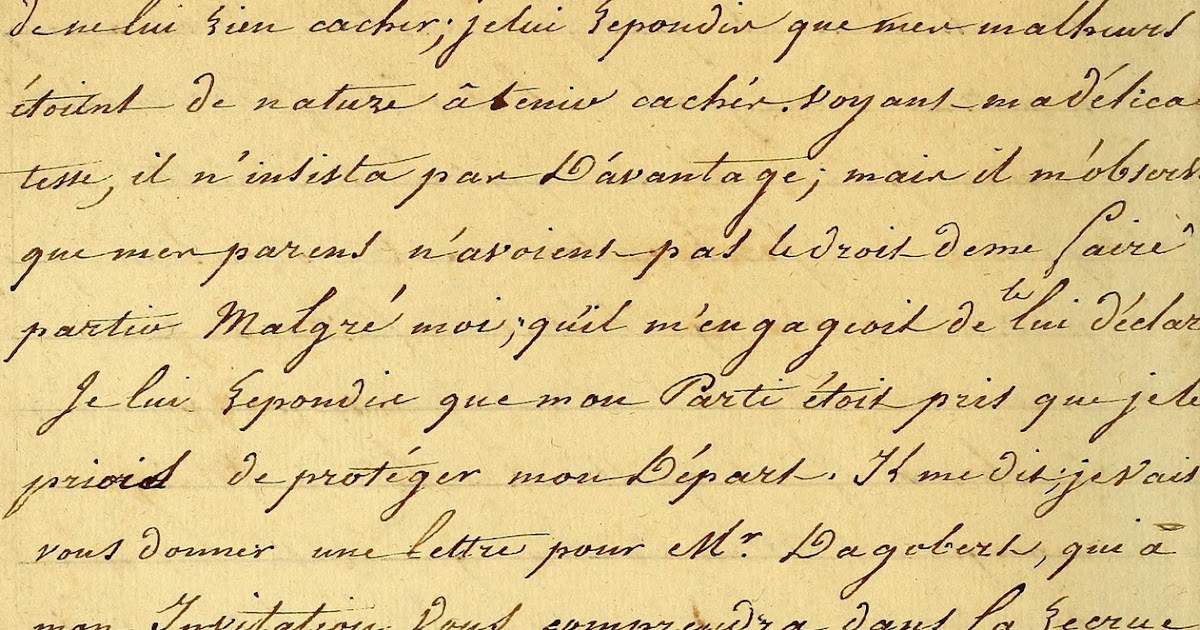 de ne lui Rien cacher; je lui Repondis que mes malheurs
étoient de nature à tenir cachés. Voyant ma délica
tesse, il n'insista pas Dávantage; mais il m'observ
que mes parens n'avoient pas le droit de me faire
partir Malgré moi; qu'il m'engageoit de le lui déclar
Je lui Repondis que mon Parti étoit pris que je le
priois de protéger mon Départ. Il me dit; je vais
vous donner une lettre pour Mr. Dagobert, qui à
mon Invitation Vous comprendra dans la Recrue